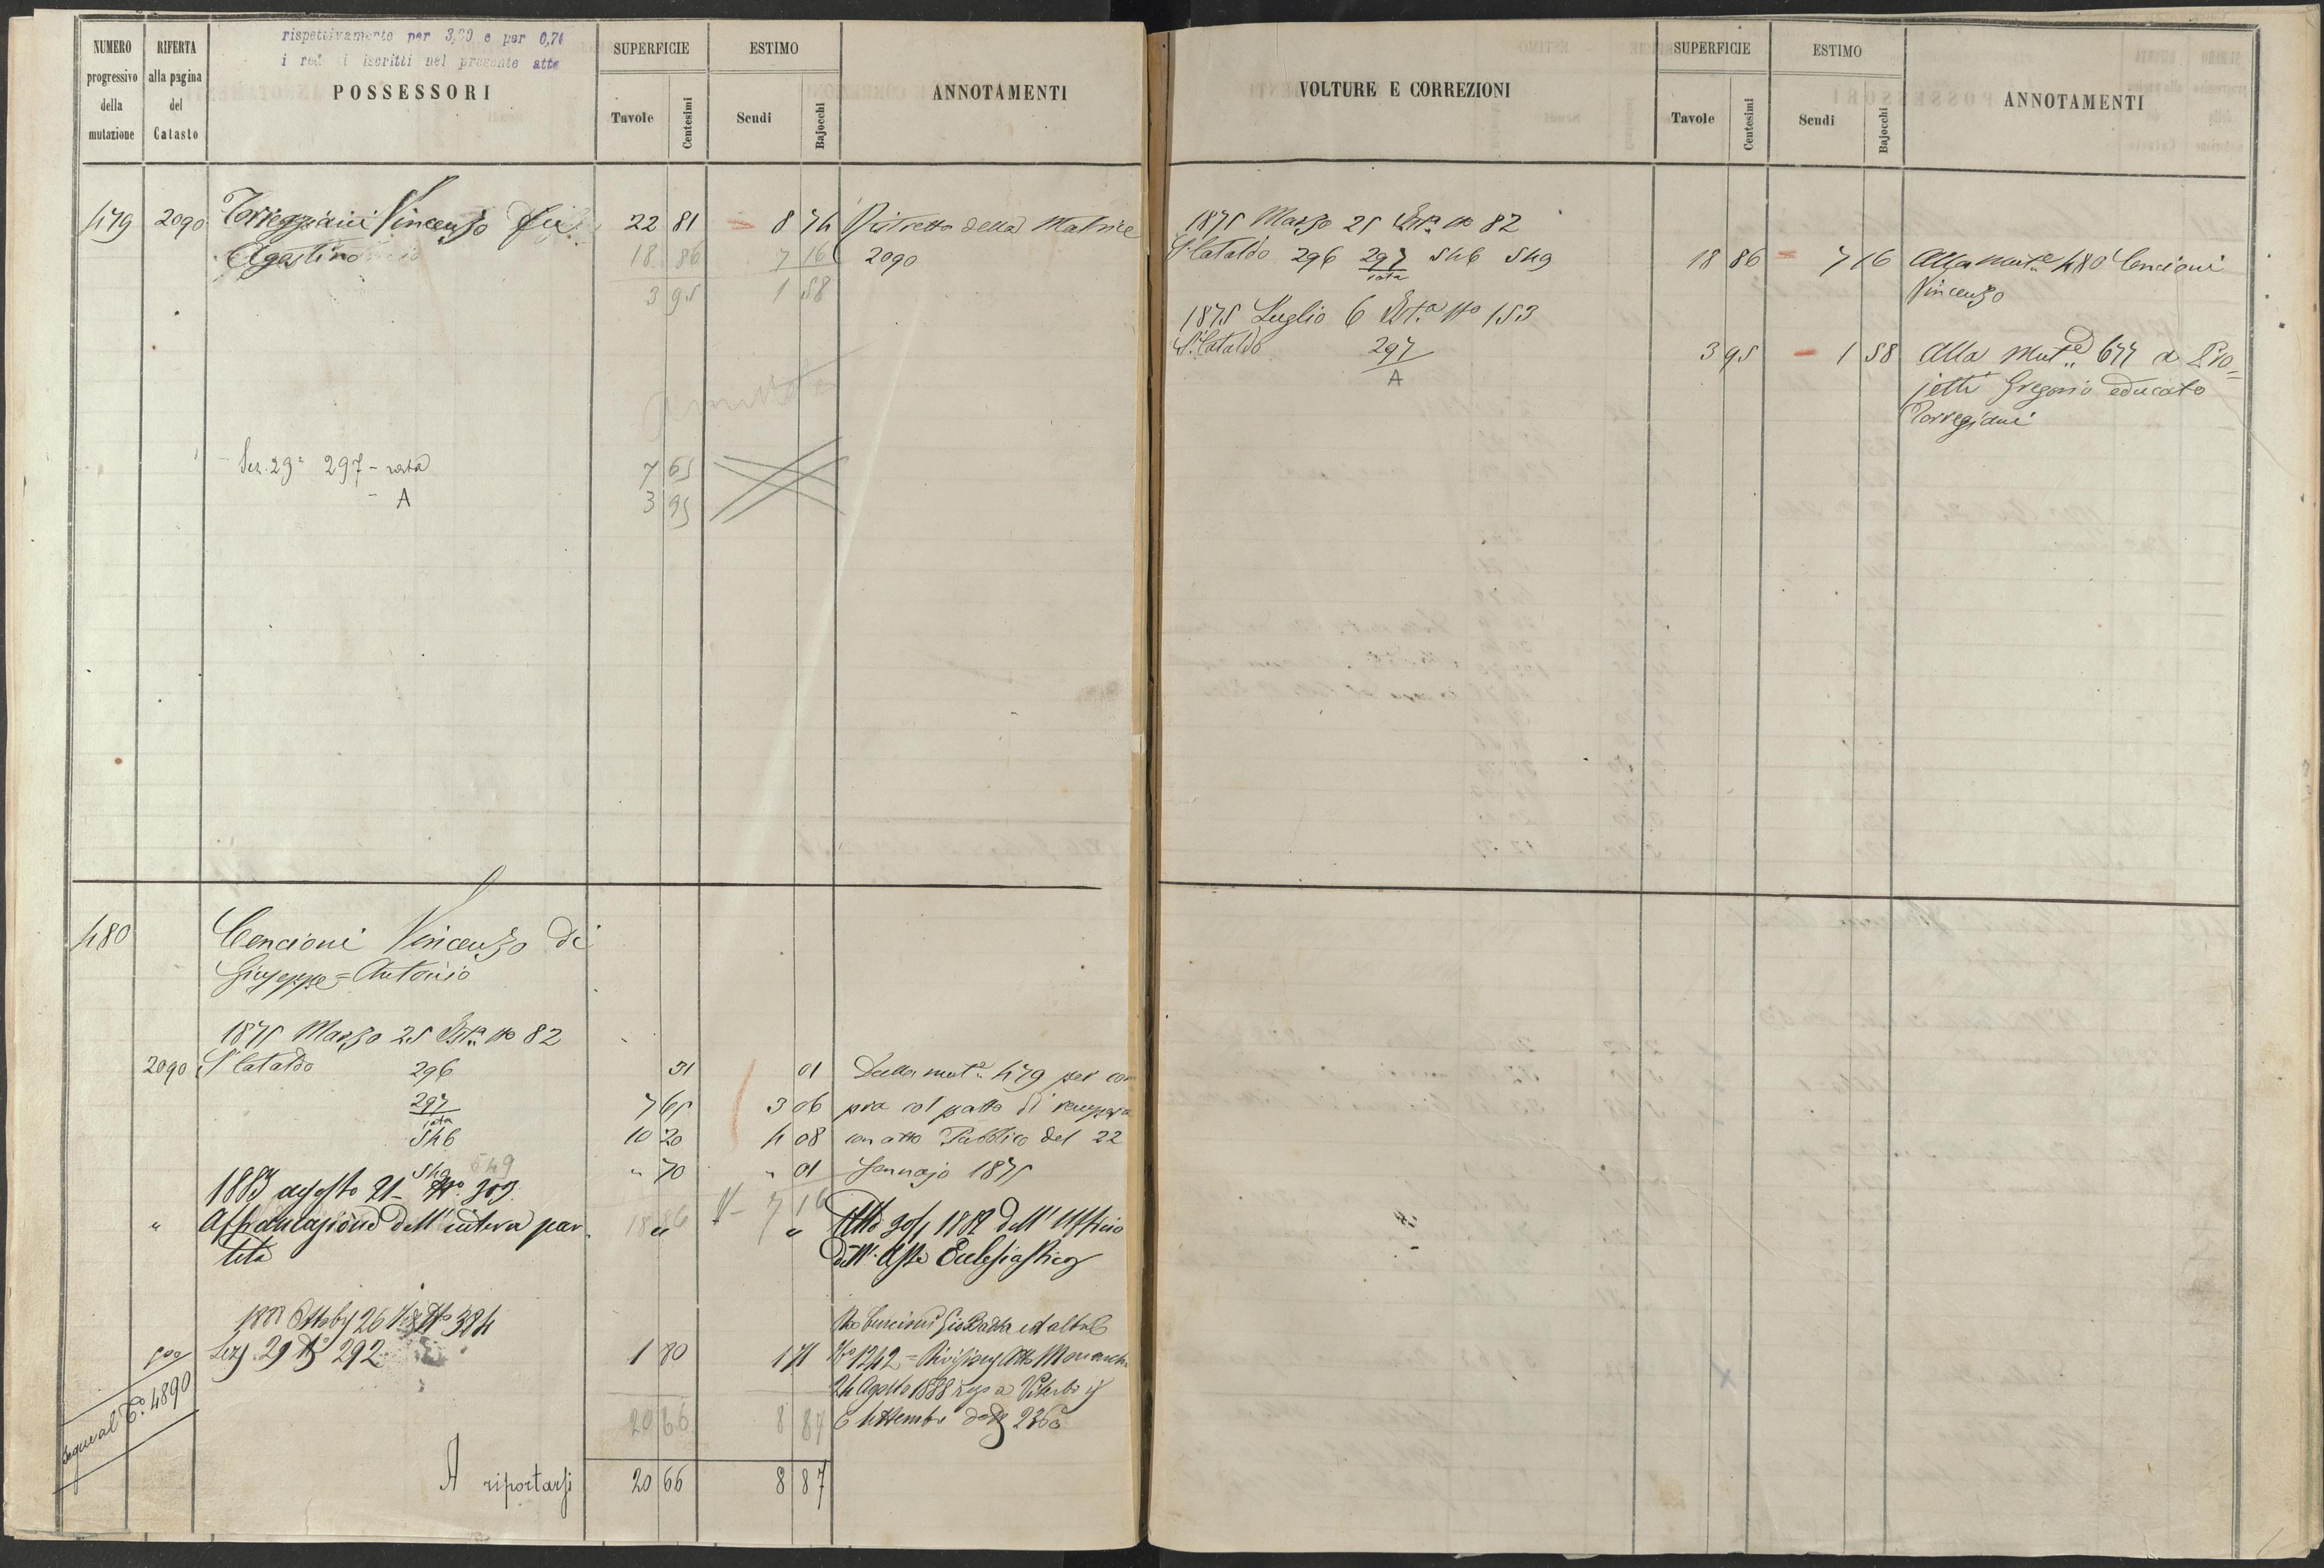 NUMERO progressivo della mutazione
RIFERTA alla pagina del Catasto
rispettivamente per 3,90 e per 0,70
i iscritti nel presente atto
POSSESSORI
SUPERFICIE
Tavole Centesimi
ESTIMO
Scudi Bajocchi
ANNOTAMENTI
479 2090 Torreggiani Vincenzo 22 81 8 74 Ristretto della Matrice
Agostino 18 86 7 16 2090
3 95 1 58
Sez. 29a 297 - rata 7 65
- A 3 95
480 Cencioni Vincenzo di
Giuseppe=Antonio
1875 Marzo 25 No 82
2090 S. Cataldo 296 31 01 Dalla muta 479 per com
297 rata 7 65 3 06 pra col patto di
546 10 20 4 08 con atto Pubblico del 22
549 549 " 70 " 01 Gennajo 1875
1883 agosto 21 No 303 7 16
" Affrancazione dell'intera par 18 86 " " Atto 30/1 1882 dell'Ufficio
tita dell'Asse Ecclesiastico
1888 Ottobre 26 No 324 Cencioni Gio Batta ed altri
500 Sez 29 No 292 1 80 1 71 No 1242 = Divisione Atto
24 Agosto 1888 a Viterbo il
Segue al No 4890 20 66 8 87 6 Settembre 2360
A riportarsi 20 66 8 87
VOLTURE E CORREZIONI
SUPERFICIE
Tavole Centesimi
ESTIMO
Scudi Bajocchi
ANNOTAMENTI
1875 Marzo 25 No 82
S. Cataldo 296 297 rata 546 549 18 86 7 16 Alla muta 480 Cencioni
Vincenzo
1875 Luglio 6 No 153
S. Cataldo 297 A 3 95 1 58 Alla Muta 677 a Pro=
jetti Gregorio educato
Torregiani